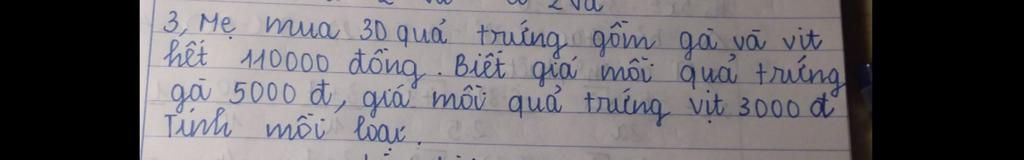 3, Mẹ mua 30 quả trứng gồm gà và vịt
hết 110000 đồng. Biết giá mỗi quả trứng
gà 5000 đ, giá mỗi quả trứng vịt 3000 đ
Tính mỗi loại.